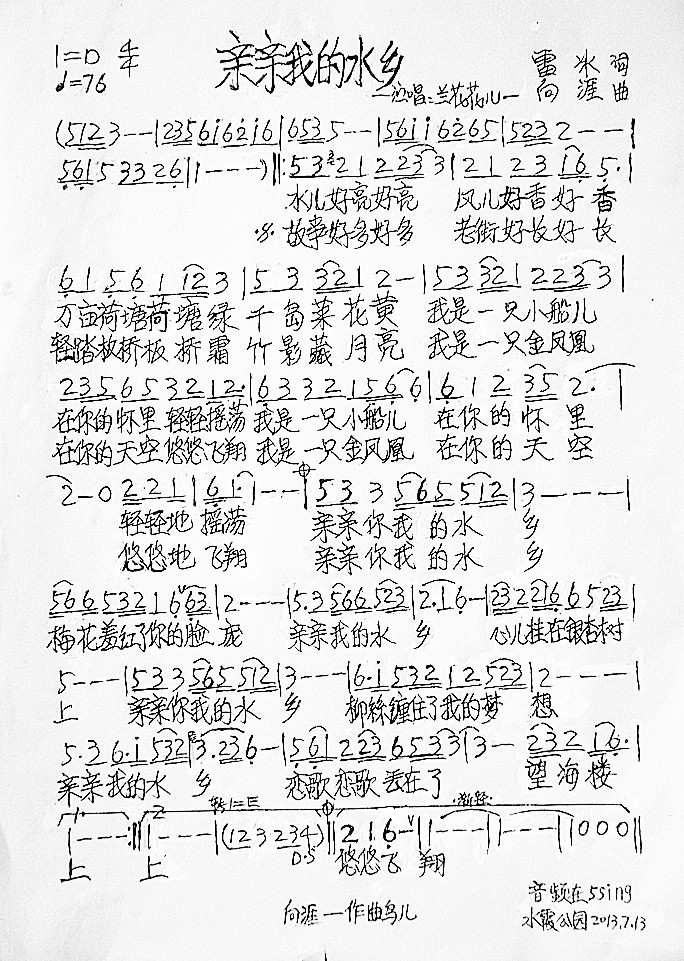 1=D 4/4
♩=76
亲亲我的水乡
—演唱:兰花花儿—
雷冰 词
向涯 曲
(5123--- | 23561621 6 | 6535--- | 56116265 | 5232--- |
56153326 | 1---) ‖: 5321 2233 | 2123165· |
水儿好亮好亮 风儿好香好香
故事好多好多 老街好长好长
61561123 | 533212- | 53321 2233 |
万亩荷塘荷塘绿 千岛菜花黄 我是一只小船儿
轻踏板桥板桥霜 竹影藏月亮 我是一只金凤凰
2356532 12· | 63321566 | 612352· |
在你的怀里轻轻摇荡 我是一只小船儿 在你的怀里
在你的天空悠悠飞翔 我是一只金凤凰 在你的天空
2-02·21 | 61·1-- | 533565512 | 3--- |
轻轻地摇荡 亲亲你我的水乡
悠悠地飞翔 亲亲你我的水乡
5665321663 | 2--- | 5·3566523 | 2·16- | 2322166523 |
梅花羞红了你的脸庞 亲亲我的水乡 心儿挂在银杏树
5--- | 533565512 | 3--- | 6·153212523 | 2---- |
上 亲亲你我的水乡 柳丝缠住了我的梦想
5·36·1532 | 3·236- | 5612236533 | 3-232 16· |
亲亲我的水乡 恋歌恋歌丢在了 望海楼
1. 2. 转1=E 渐轻
| 1--- :‖ 1--- | (123234) ‖ 216- | 1--- | 1--- | 1000 ‖
D.S
上 上 悠悠飞翔
向涯—作曲鸟儿
音频在5sing
水霞公园2013.7.13